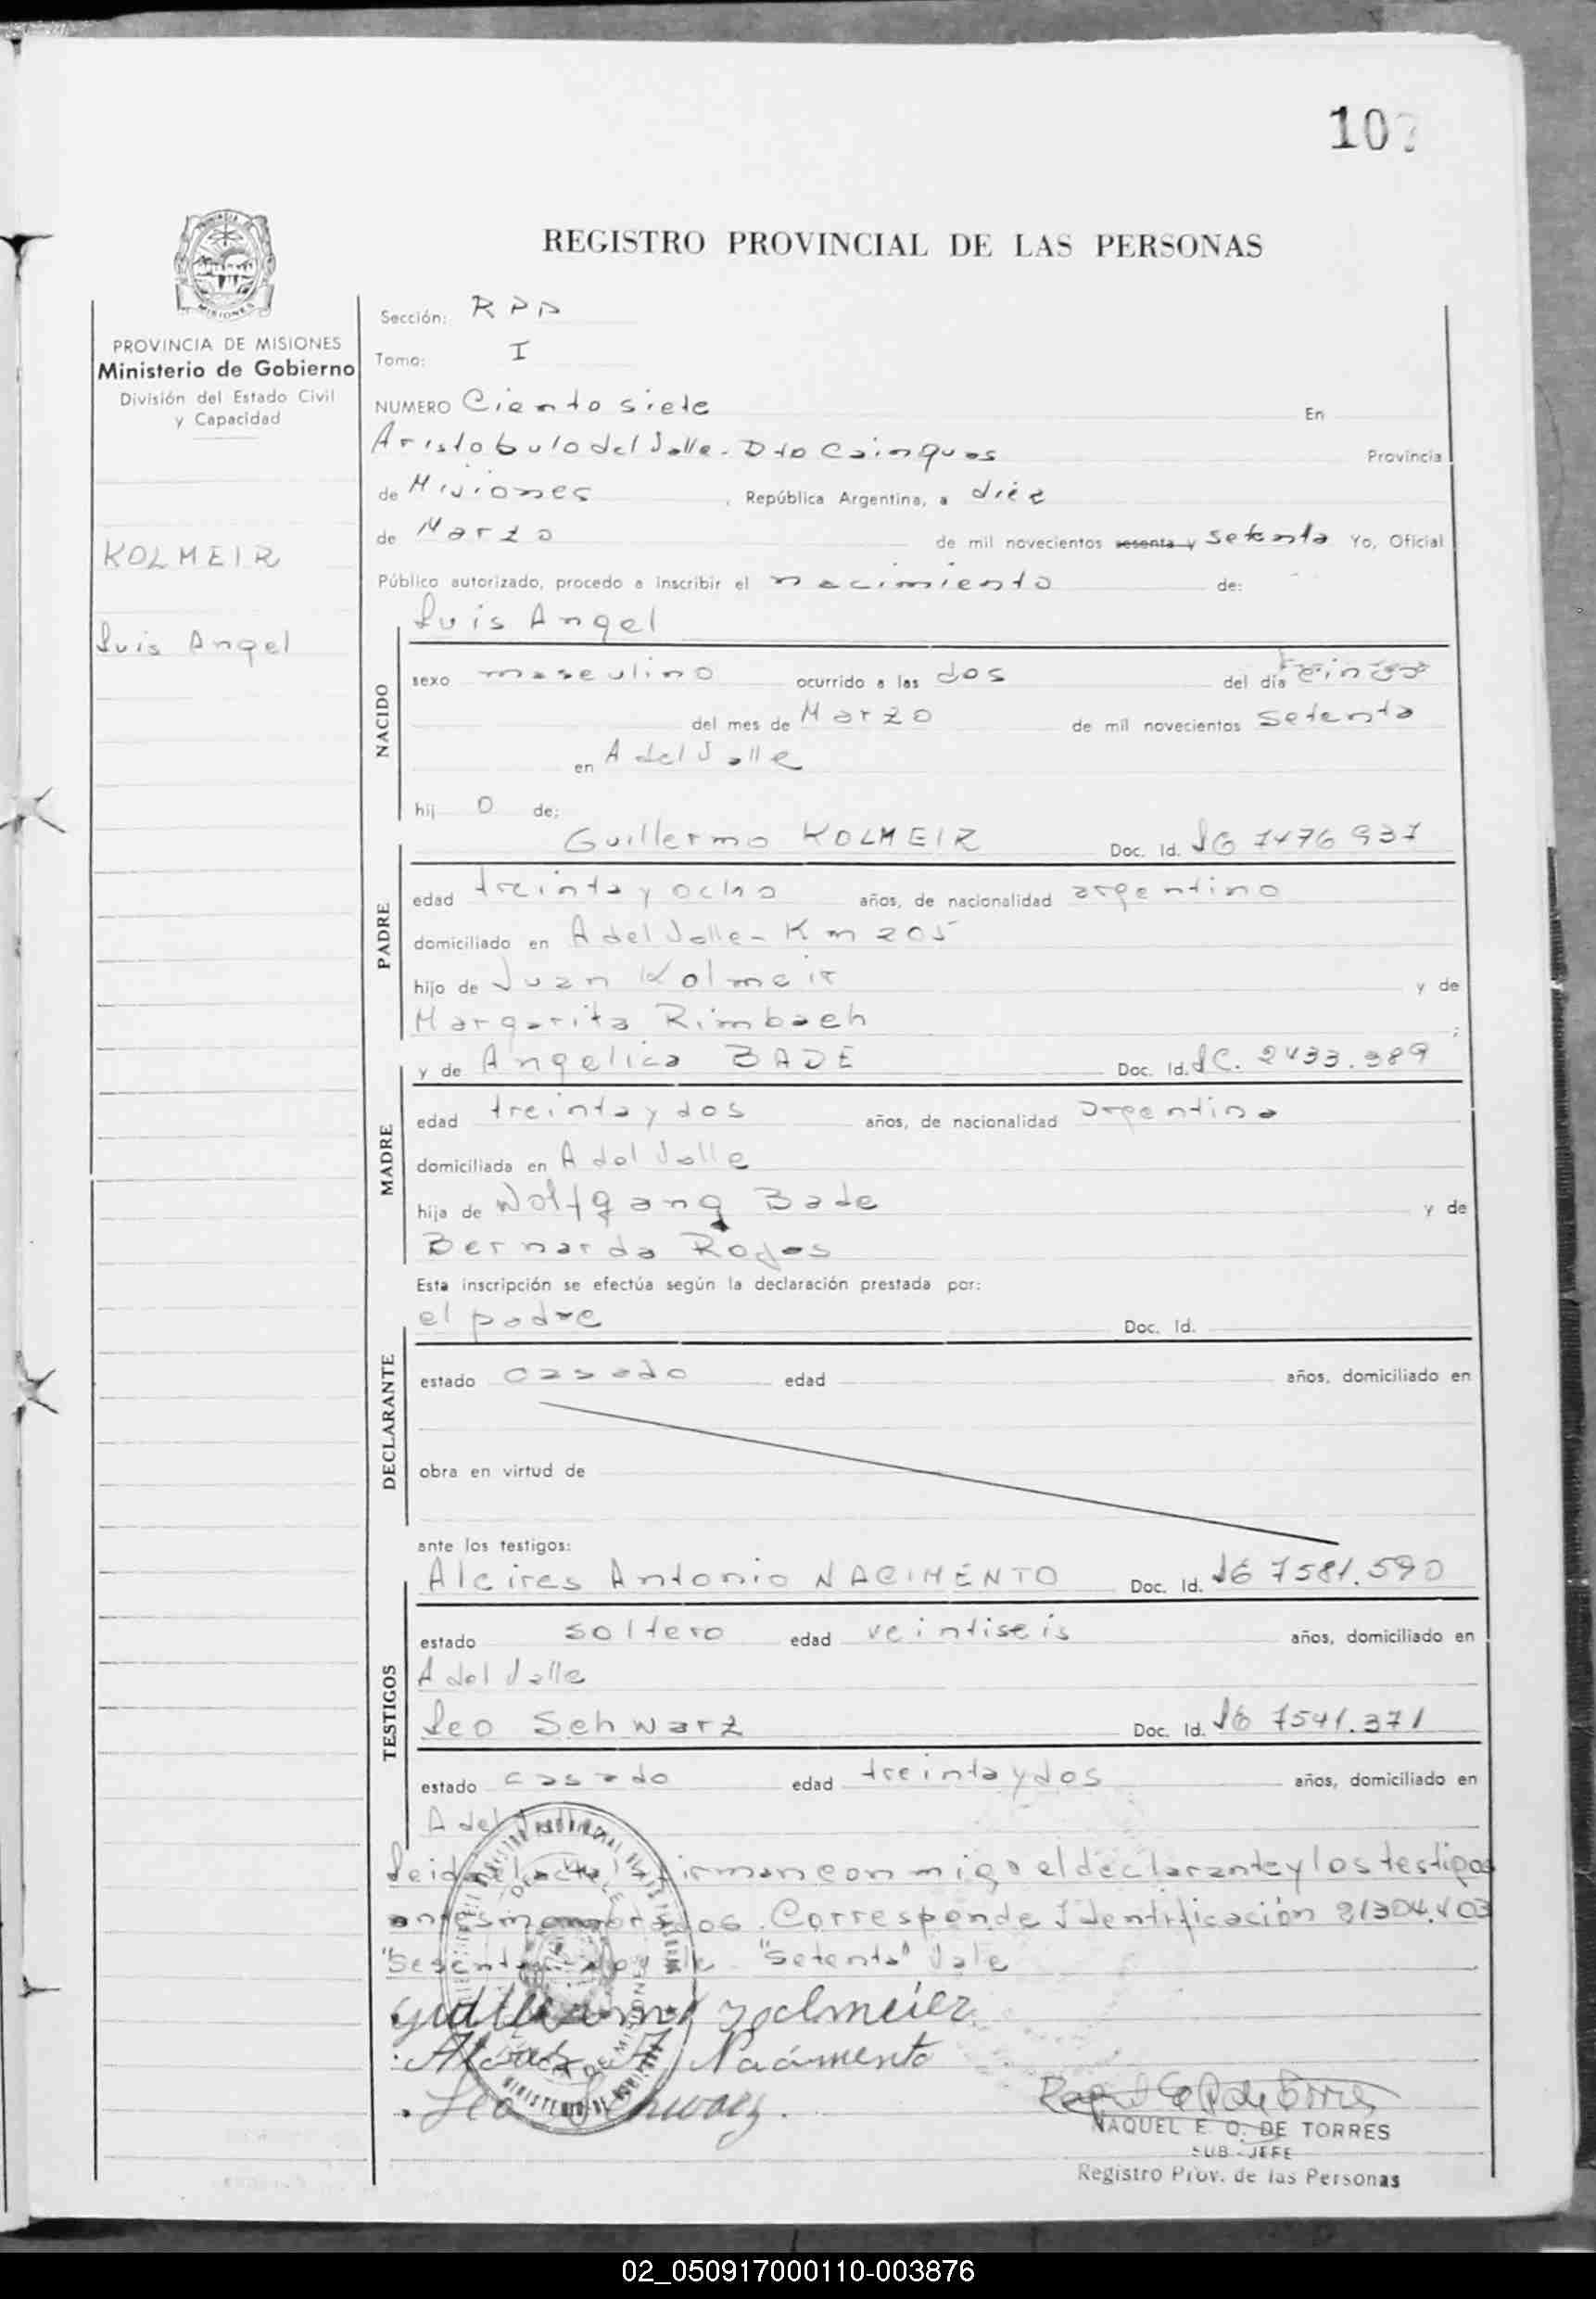 107
REGISTRO PROVINCIAL DE LAS PERSONAS
PROVINCIA DE MISIONES
Ministerio de Gobierno
División del Estado Civil
y Capacidad
KOLMEIR
Luis Angel
Sección: RPP
Tomo: I
NUMERO Ciento siete En
Aristobulo del Valle - Dto Cainguas Provincia
de Misiones, República Argentina, a diez
de Marzo de mil novecientos sesenta y setenta Yo, Oficial
Público autorizado, procedo a inscribir el nacimiento de:
Luis Angel
NACIDO
sexo masculino ocurrido a las dos del día
del mes de Marzo de mil novecientos setenta
en A del Valle
hij o de:
Guillermo KOLMEIR Doc. Id. 7476937
PADRE
edad treinta y ocho años, de nacionalidad argentino
domiciliado en A del Valle - Km 205
hijo de Juan Kolmeir y de
Margarita Rimbach ;
y de Angelica BADE Doc. Id. LC. 2433.389
MADRE
edad treinta y dos años, de nacionalidad argentina
domiciliada en A del Valle
hija de Wolfgang Bade y de
Bernarda Rojas
Esta inscripción se efectúa según la declaración prestada por:
el padre Doc. Id.
DECLARANTE
estado casado edad años, domiciliado en
obra en virtud de
ante los testigos:
Alcires Antonio NACIMENTO Doc. Id. 7581.590
TESTIGOS
estado soltero edad veintiseis años, domiciliado en
A del Valle
Leo Schwarz Doc. Id. 7541.371
estado casado edad treinta y dos años, domiciliado en
A del
Leida el acta firman conmigo el declarante y los testigos
antes mombrados. Corresponde Identificación 21304.403
"Sesenta "Setenta" Vale
Nacimento
Leo Schwarz.
RAQUEL E. O. DE TORRES
SUB-JEFE
Registro Prov. de las Personas
02_050917000110-003876